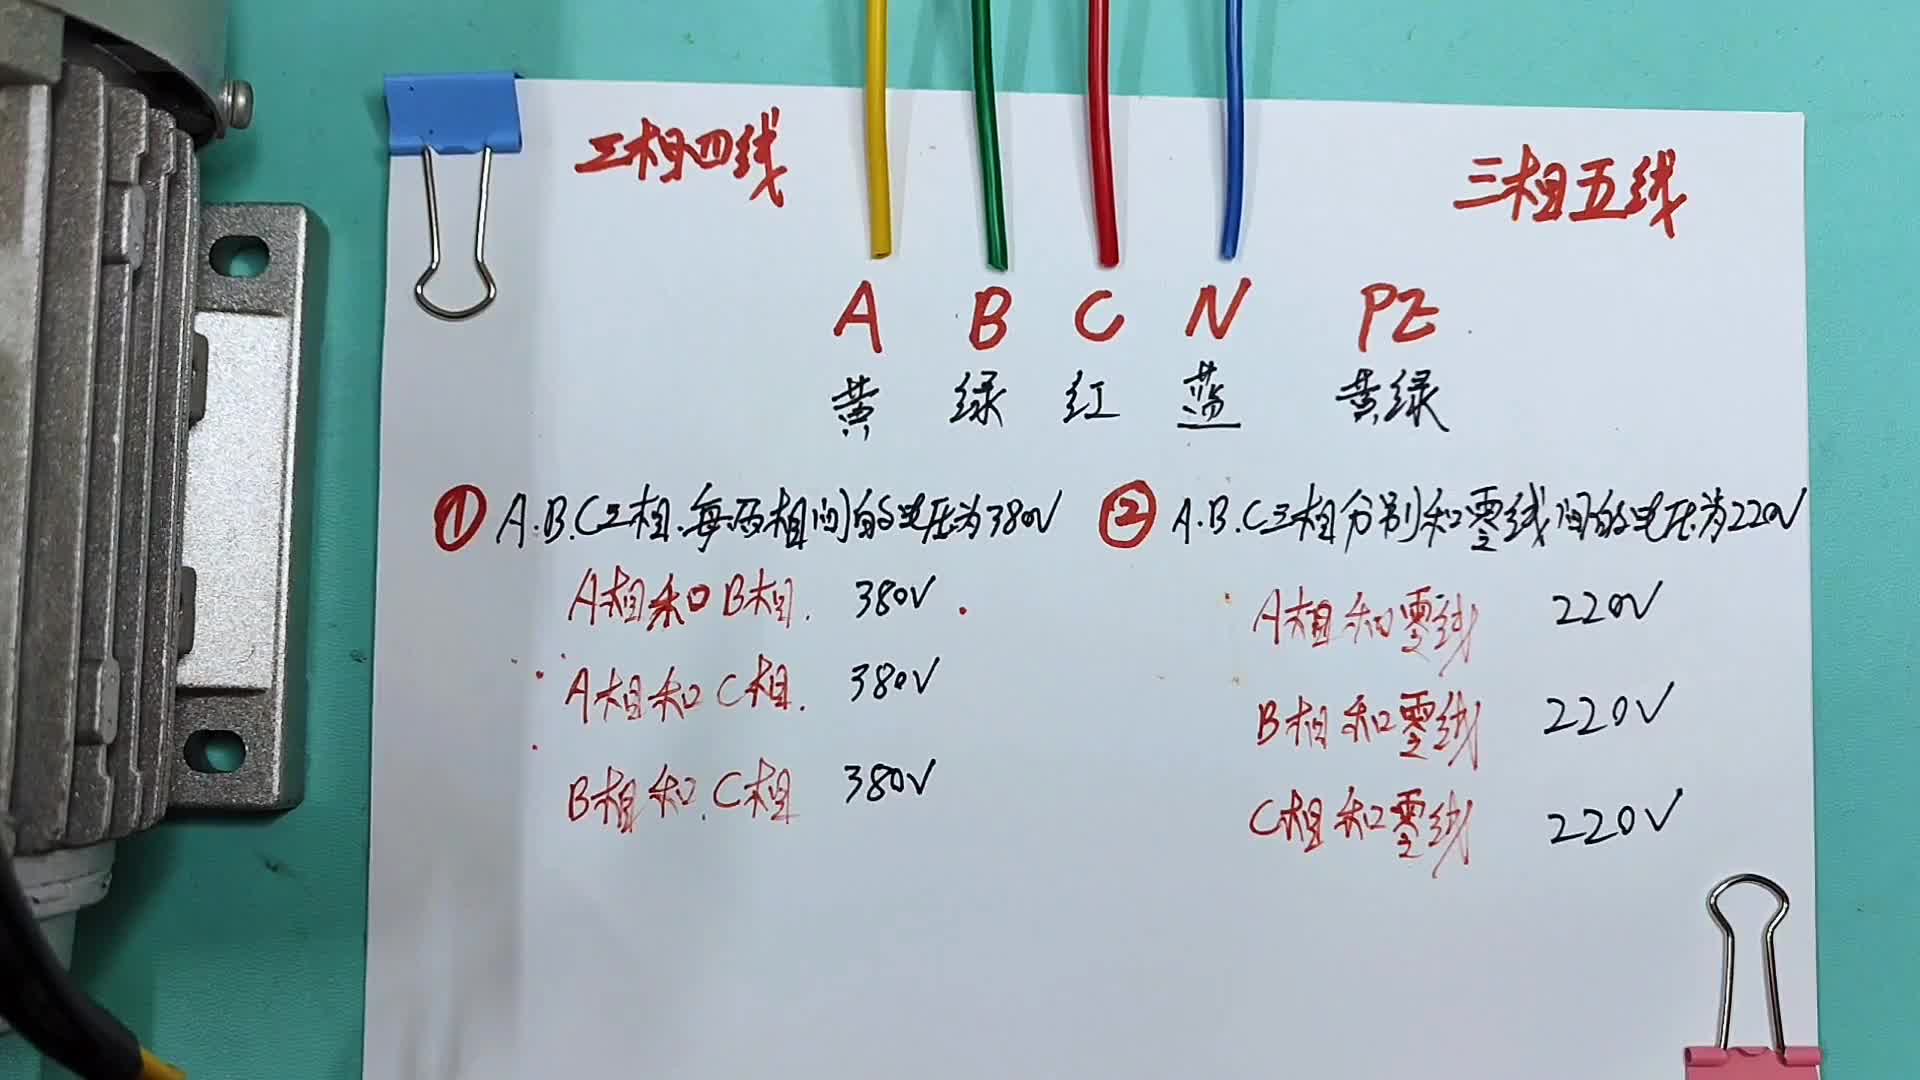 三相四线
三相五线
A B C N PE
黄 绿 红 蓝 黄绿
① A.B.C三相.每两相间的电压为380V
A相和B相. 380V
A相和C相. 380V
B相和C相 380V
② A.B.C三相分别和零线间的电压为220V
A相和零线 220V
B相和零线 220V
C相和零线 220V